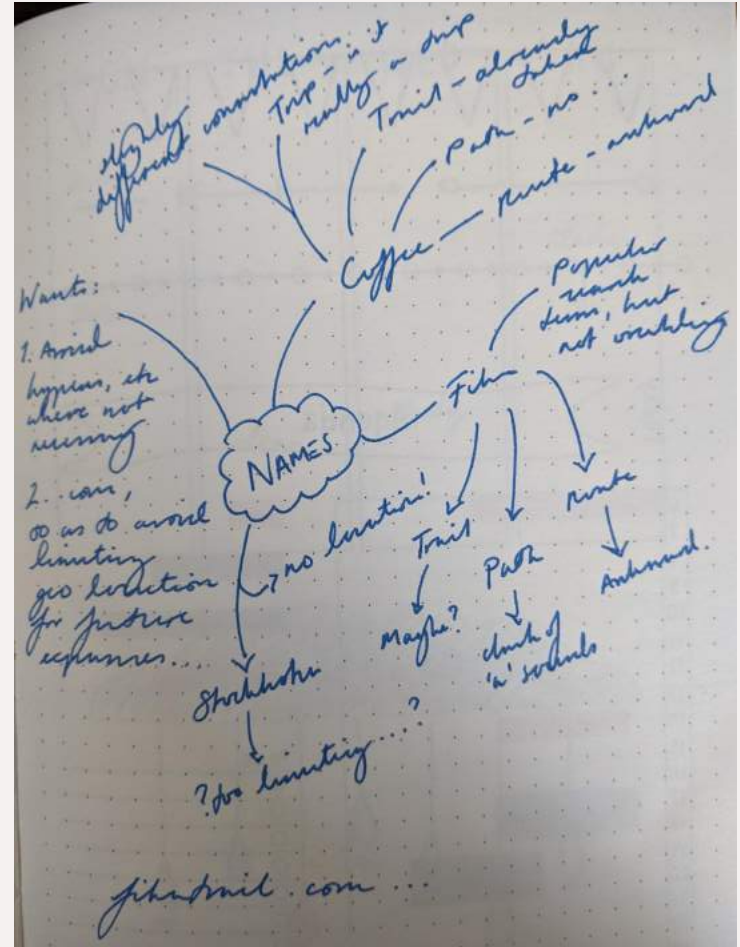 slightly
different connotations
Trip - is it
really a trip
Trail - already
taken
Path - no...
Route - awkward
Coffee
Wants:
1. Avoid
hyphens, etc
where not
necessary
2. .com,
so as to avoid
limiting
geo location
for future
expansions...
NAMES
Fika
Popular
search
term, but
not ranking
no location!
Trail
Maybe?
Path
clash of
'a' sounds
Route
Awkward.
Stockholm
? too limiting....?
fikatrail.com ...